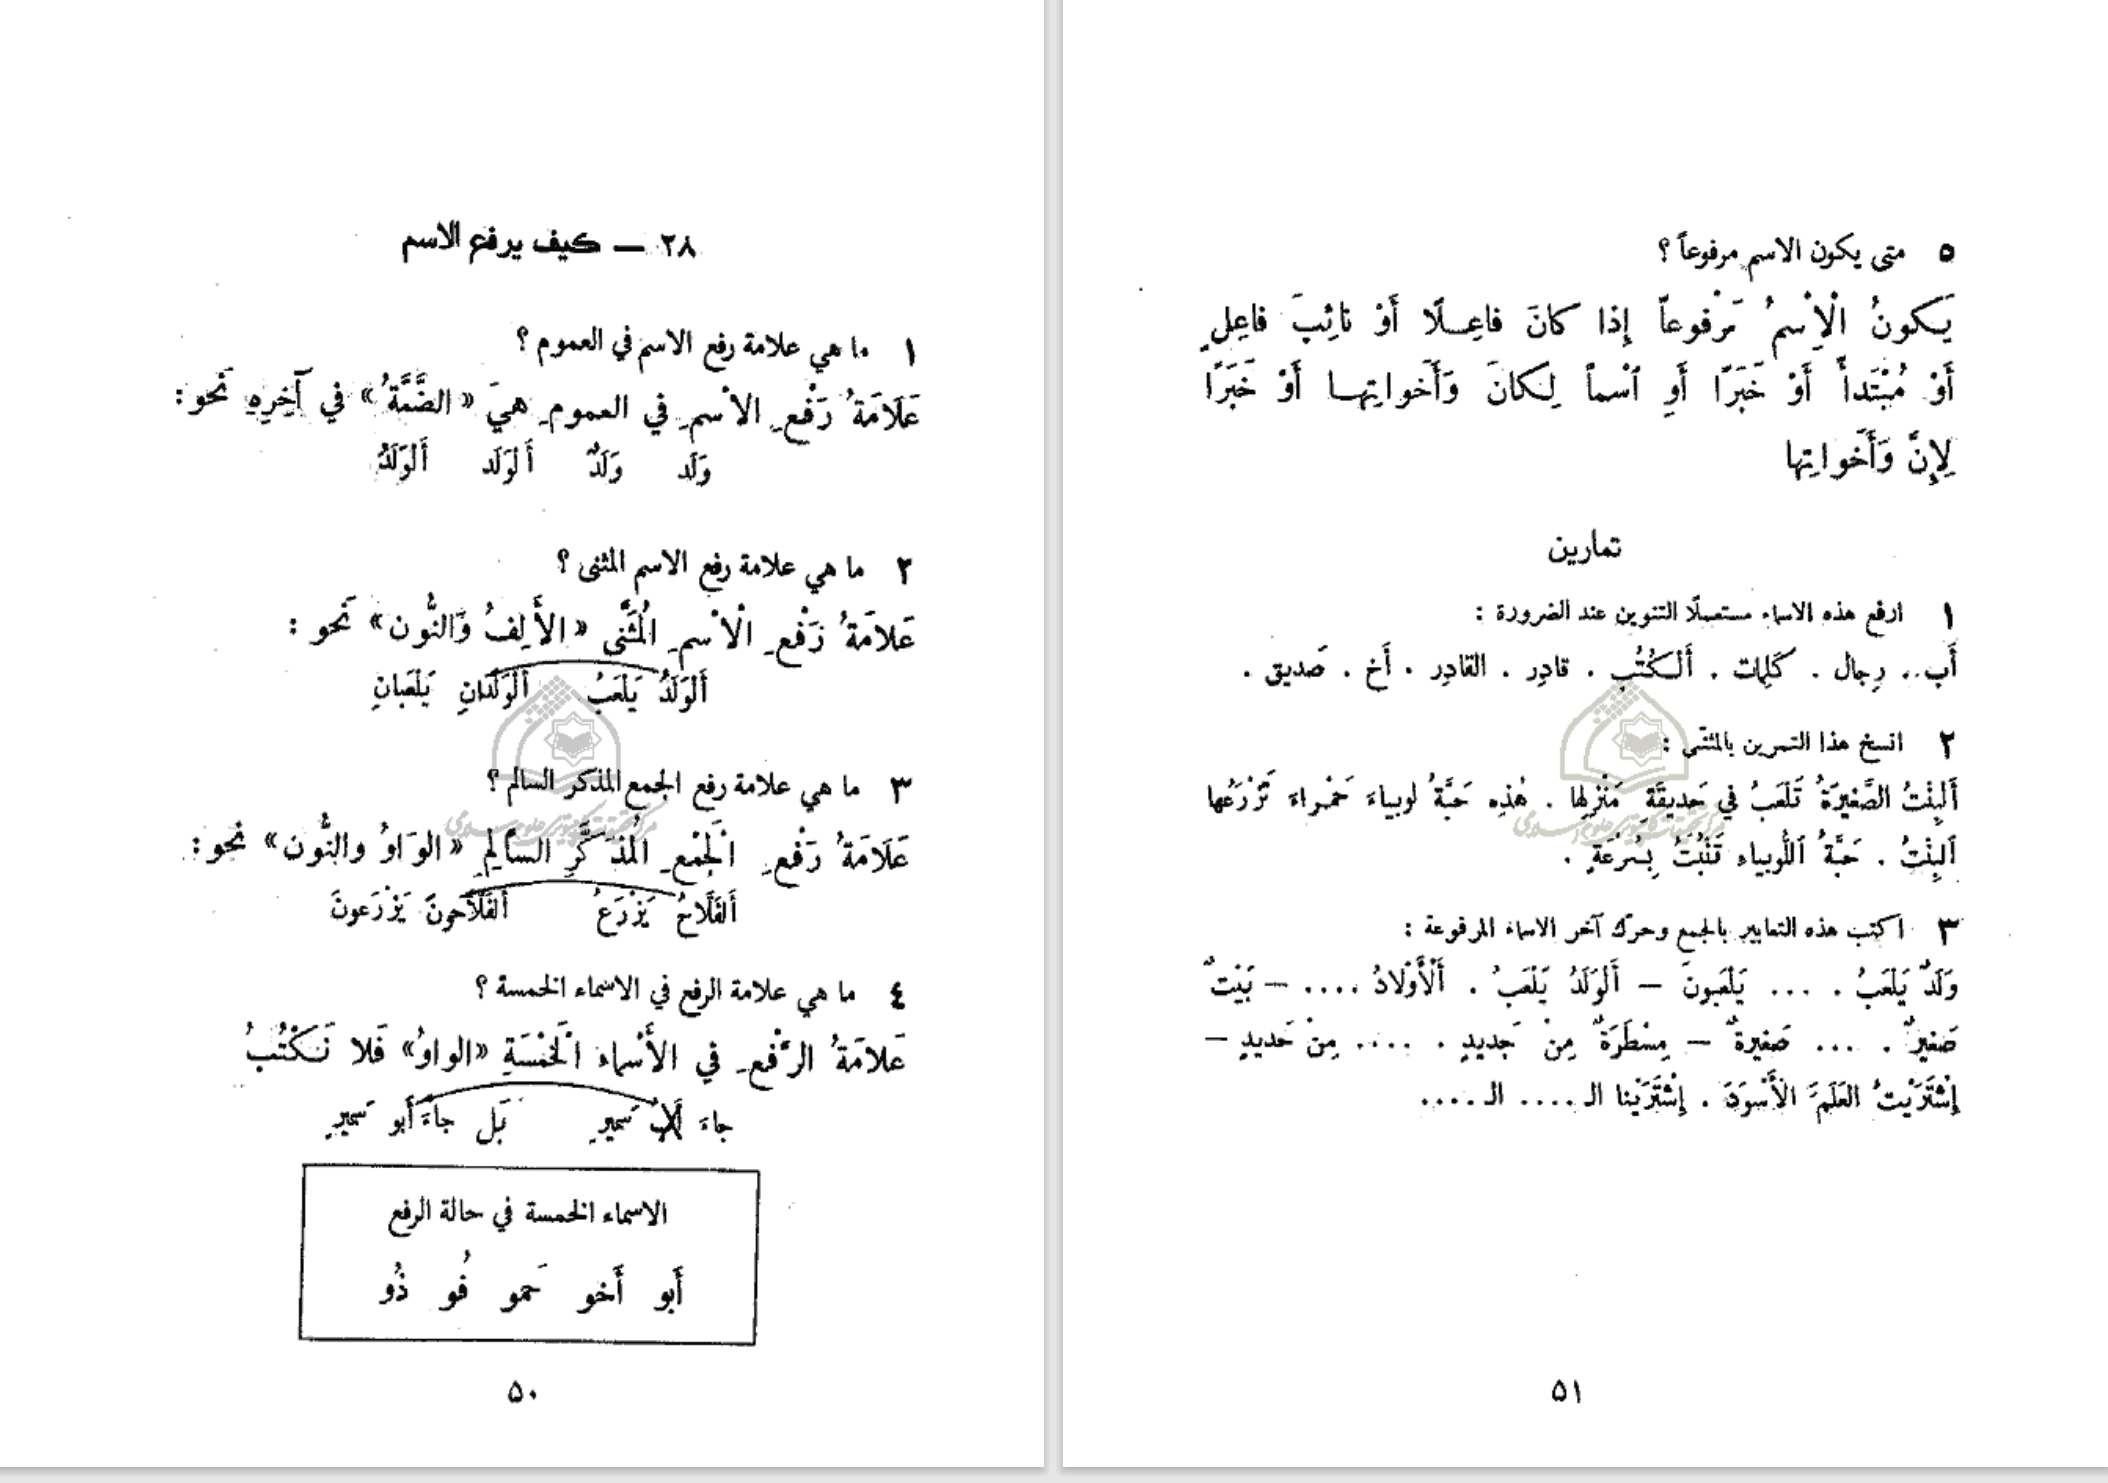 ٢٨ — كيف يرفع الاسم
١ ما هي علامة رفع الاسم في العموم ؟
عَلَامَةُ رَفْعِ الاْسمِ في العمومِ هيَ « الضَّمَّةُ » في آخِرِهِ نَحو :
وَلَد وَلَدٌ أَلوَلَد أَلوَلَدُ
٢ ما هي علامة رفع الاسم المثنى ؟
عَلامَةُ رَفْعِ الْاسْمِ المُثَنَّى « الأَلِفُ وَالنُّون » نَحو :
أَلوَلَدُ يَلْعَبُ أَلْوَلَدَانِ يَلْعَبانِ
٣ ما هي علامة رفع الجمع المذكر السالم ؟
عَلَامَةُ رَفْعِ الْجَمْعِ المُذَكَّرِ السالِمِ « الوَاوُ والنُّون » نحو :
أَلفَلَّاحُ يَزْرَعُ أَلفَلَّاحونَ يَزْرَعونَ
٤ ما هي علامة الرفع في الاسماء الخمسة ؟
عَلامَةُ الرَّفعِ في الأَسْماء الْخَمْسَةِ «الواوُ» فَلا نَكْتُبُ
جاءَ أَبُ سَميرٍ بَل جاءَ أَبو سَميرٍ
الاسماء الخمسة في حالة الرفع
أَبو أَخو حَمو فُو ذُو
٥٠
٥ متى يكون الاسم مرفوعاً ؟
يَكونُ الْاِسْمُ مَرْفوعاً إِذا كانَ فاعِلًا أَوْ نائِبَ فاعِلٍ
أَوْ مُبْتَدأً أَوْ خَبَرًا أَوِ اَسْماً لِكانَ وَأَخواتِها أَوْ خَبَرًا
لِإِنَّ وَأَخواتِها
تمارين
١ ارفع هذه الاسماء مستعملًا التنوين عند الضرورة :
أَب . رِجال . كَلِمات . أَلكُتُب . قادِر . القادِر . أَخ . صَديق .
٢ انسخ هذا التمرين بالمثنّى :
أَلبِنْتُ الصَّغيرَةُ تَلْعَبُ في حَديقَةِ مَنْزِلِها . هٰذِه حَبَّةُ لوبياءَ حَمْراءَ تَزْرَعُها
اَلبِنْتُ . حَبَّةُ اَللُّوبياء تَنْبُتُ بِسُرْعَةٍ .
٣ اكتب هذه التعابير بالجمع وحرّك آخر الاسماء المرفوعة :
وَلَدٌ يَلعَبُ . ... يَلْعَبونَ – أَلوَلَدُ يَلْعَبُ . أَلْأَوْلادُ .... – بَيْتٌ
صَغيرٌ . ... صَغيرةٌ – مِسْطَرَةٌ مِنْ حَديدٍ . .... مِنْ حَديدٍ –
إِشْتَرَيْتُ العَلَمَ الأَسْوَدَ . إِشْتَرَيْنا الـ .... الـ ....
٥١